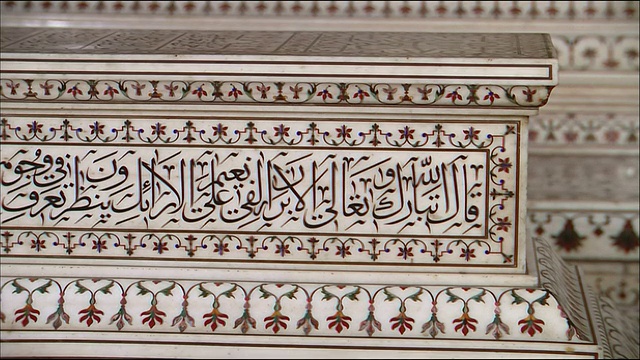 قال الله تبارك وتعالى ان الابرار لفي نعيم على الارائك ينظرون تعرف في